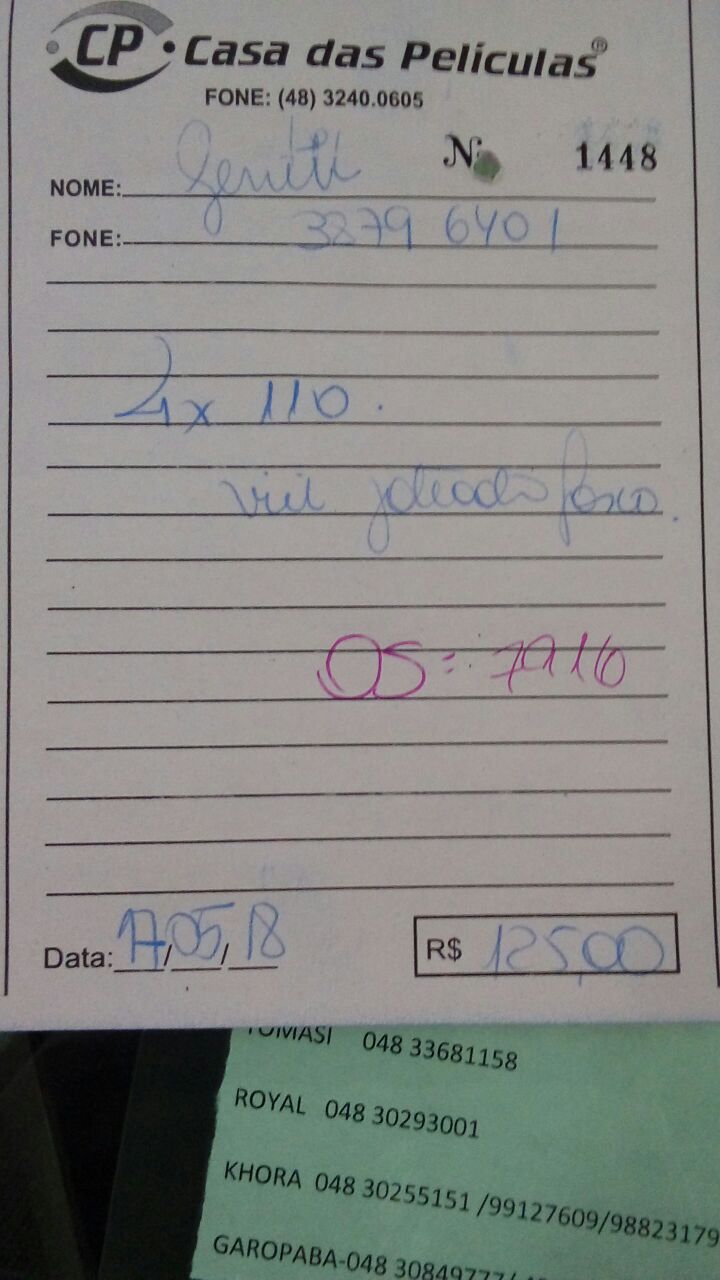 CP • Casa das Películas®
FONE: (48) 3240.0605
Nº 1448
NOME:
FONE: 3879 6401
x 110.
jateado fosco.
OS: 7916
Data: 17/05/18
R$ 125,00
TOMASI 048 33681158
ROYAL 048 30293001
KHORA 048 30255151 /99127609/98823179
GAROPABA-048 30849777/